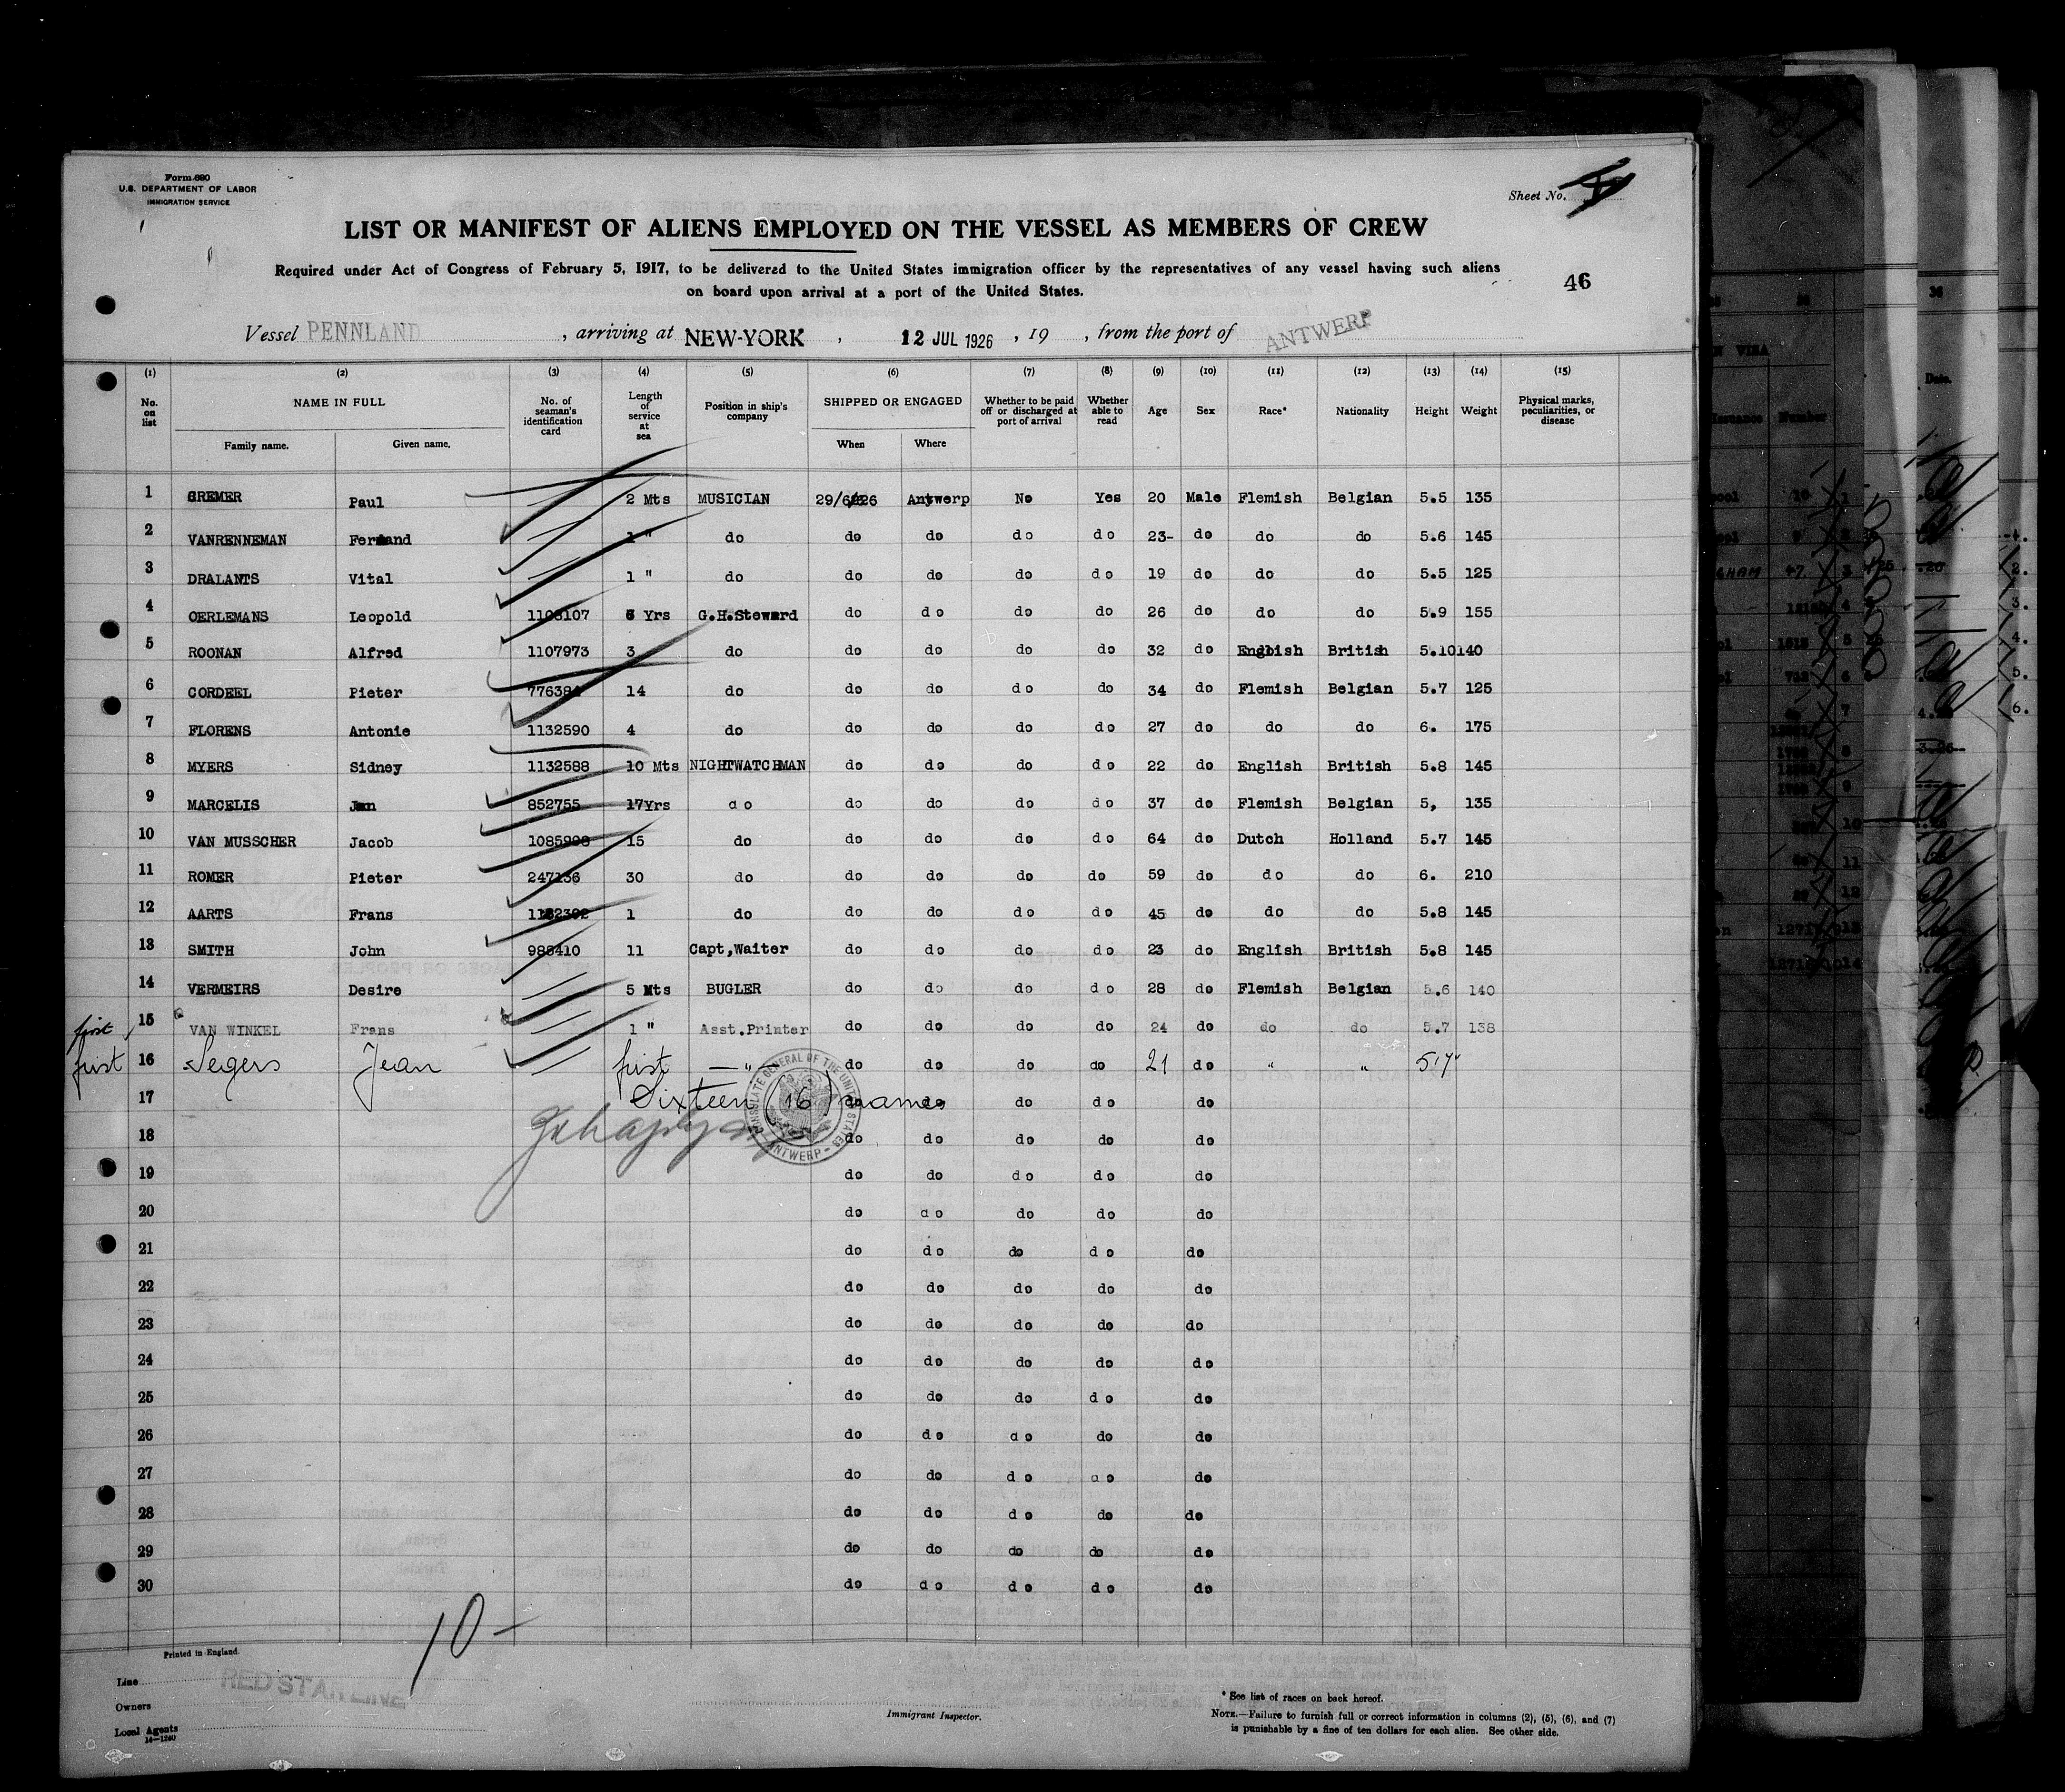 Form 680
U.S. DEPARTMENT OF LABOR
IMMIGRATION SERVICE
Sheet No.
LIST OR MANIFEST OF ALIENS EMPLOYED ON THE VESSEL AS MEMBERS OF CREW
Required under Act of Congress of February 5, 1917, to be delivered to the United States immigration officer by the representatives of any vessel having such aliens
on board upon arrival at a port of the United States.
46
Vessel PENNLAND, arriving at NEW-YORK, 12 JUL 1926, 19, from the port of ANTWERP
(1) (2) (3) (4) (5) (6) (7) (8) (9) (10) (11) (12) (13) (14) (15)
No. on list NAME IN FULL Family name. Given name. No. of seaman's identification card Length of service at sea Position in ship's company SHIPPED OR ENGAGED When Where Whether to be paid off or discharged at port of arrival Whether able to read Age Sex Race* Nationality Height Weight Physical marks, peculiarities, or disease
1 CREMER Paul 2 Mts MUSICIAN 29/6/26 Antwerp No Yes 20 Male Flemish Belgian 5.5 135
2 VANRENNEMAN Fernand 1 " do do do do do 23- do do do 5.6 145
3 DRALANTS Vital 1 " do do do do do 19 do do do 5.5 125
4 OERLEMANS Leopold 1106107 6 Yrs G.H.Steward do do do do 26 do do do 5.9 155
5 ROONAN Alfred 1107973 3 do do do do do 32 do English British 5.10 140
6 CORDEEL Pieter 14 do do do do do 34 do Flemish Belgian 5.7 125
7 FLORENS Antonie 1132590 4 do do do do do 27 do do do 6. 175
8 MYERS Sidney 1132588 10 Mts NIGHTWATCHMAN do do do do 22 do English British 5.8 145
9 MARCELIS Jan 852755 17Yrs do do do do do 37 do Flemish Belgian 5, 135
10 VAN MUSSCHER Jacob 15 do do do do do 64 do Dutch Holland 5.7 145
11 ROMER Pieter 247136 30 do do do do do 59 do do do 6. 210
12 AARTS Frans 1 do do do do do 45 do do do 5.8 145
13 SMITH John 988410 11 Capt,Waiter do do do do 23 do English British 5.8 145
14 VERMEIRS Desire 5 Mts BUGLER do do do do 28 do Flemish Belgian 5.6 140
first 15 VAN WINKEL Frans 1 " Asst.Printer do do do do 24 do do do 5.7 138
first 16 Segers Jean first — " do do do do 21 do " " 5'7"
17 Sixteen (16) names do do do do do
18 do do do do do
CONSULATE GENERAL OF THE UNITED STATES ANTWERP
19 do do do do do
20 do do do do do
21 do do do do do
22 do do do do do
23 do do do do do
24 do do do do do
25 do do do do do
26 do do do do do
27 do do do do do
28 do do do do do
29 do do do do do
30 do do do do do
10-
Printed in England.
Line RED STAR LINE
Owners
Local Agents
14—1240
Immigrant Inspector.
* See list of races on back hereof.
NOTE.—Failure to furnish full or correct information in columns (2), (5), (6), and (7)
is punishable by a fine of ten dollars for each alien. See other side.